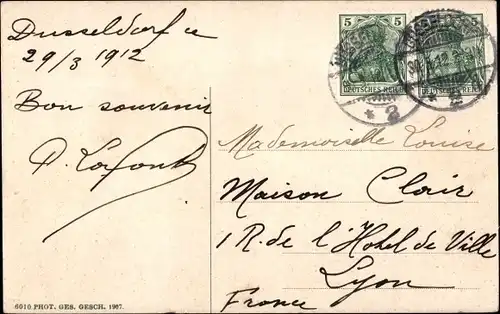 Dusseldorf le
29/3 1912
Bon souvenir
P. Lafont
Mademoiselle Louise
Maison Clair
1 R. de l'Hotel de Ville
Lyon
France
5 5
DEUTSCHES REICH
5
REICH
DÜSSELDORF
* 2
12
* 2
6010 PHOT. GES. GESCH. 1907.